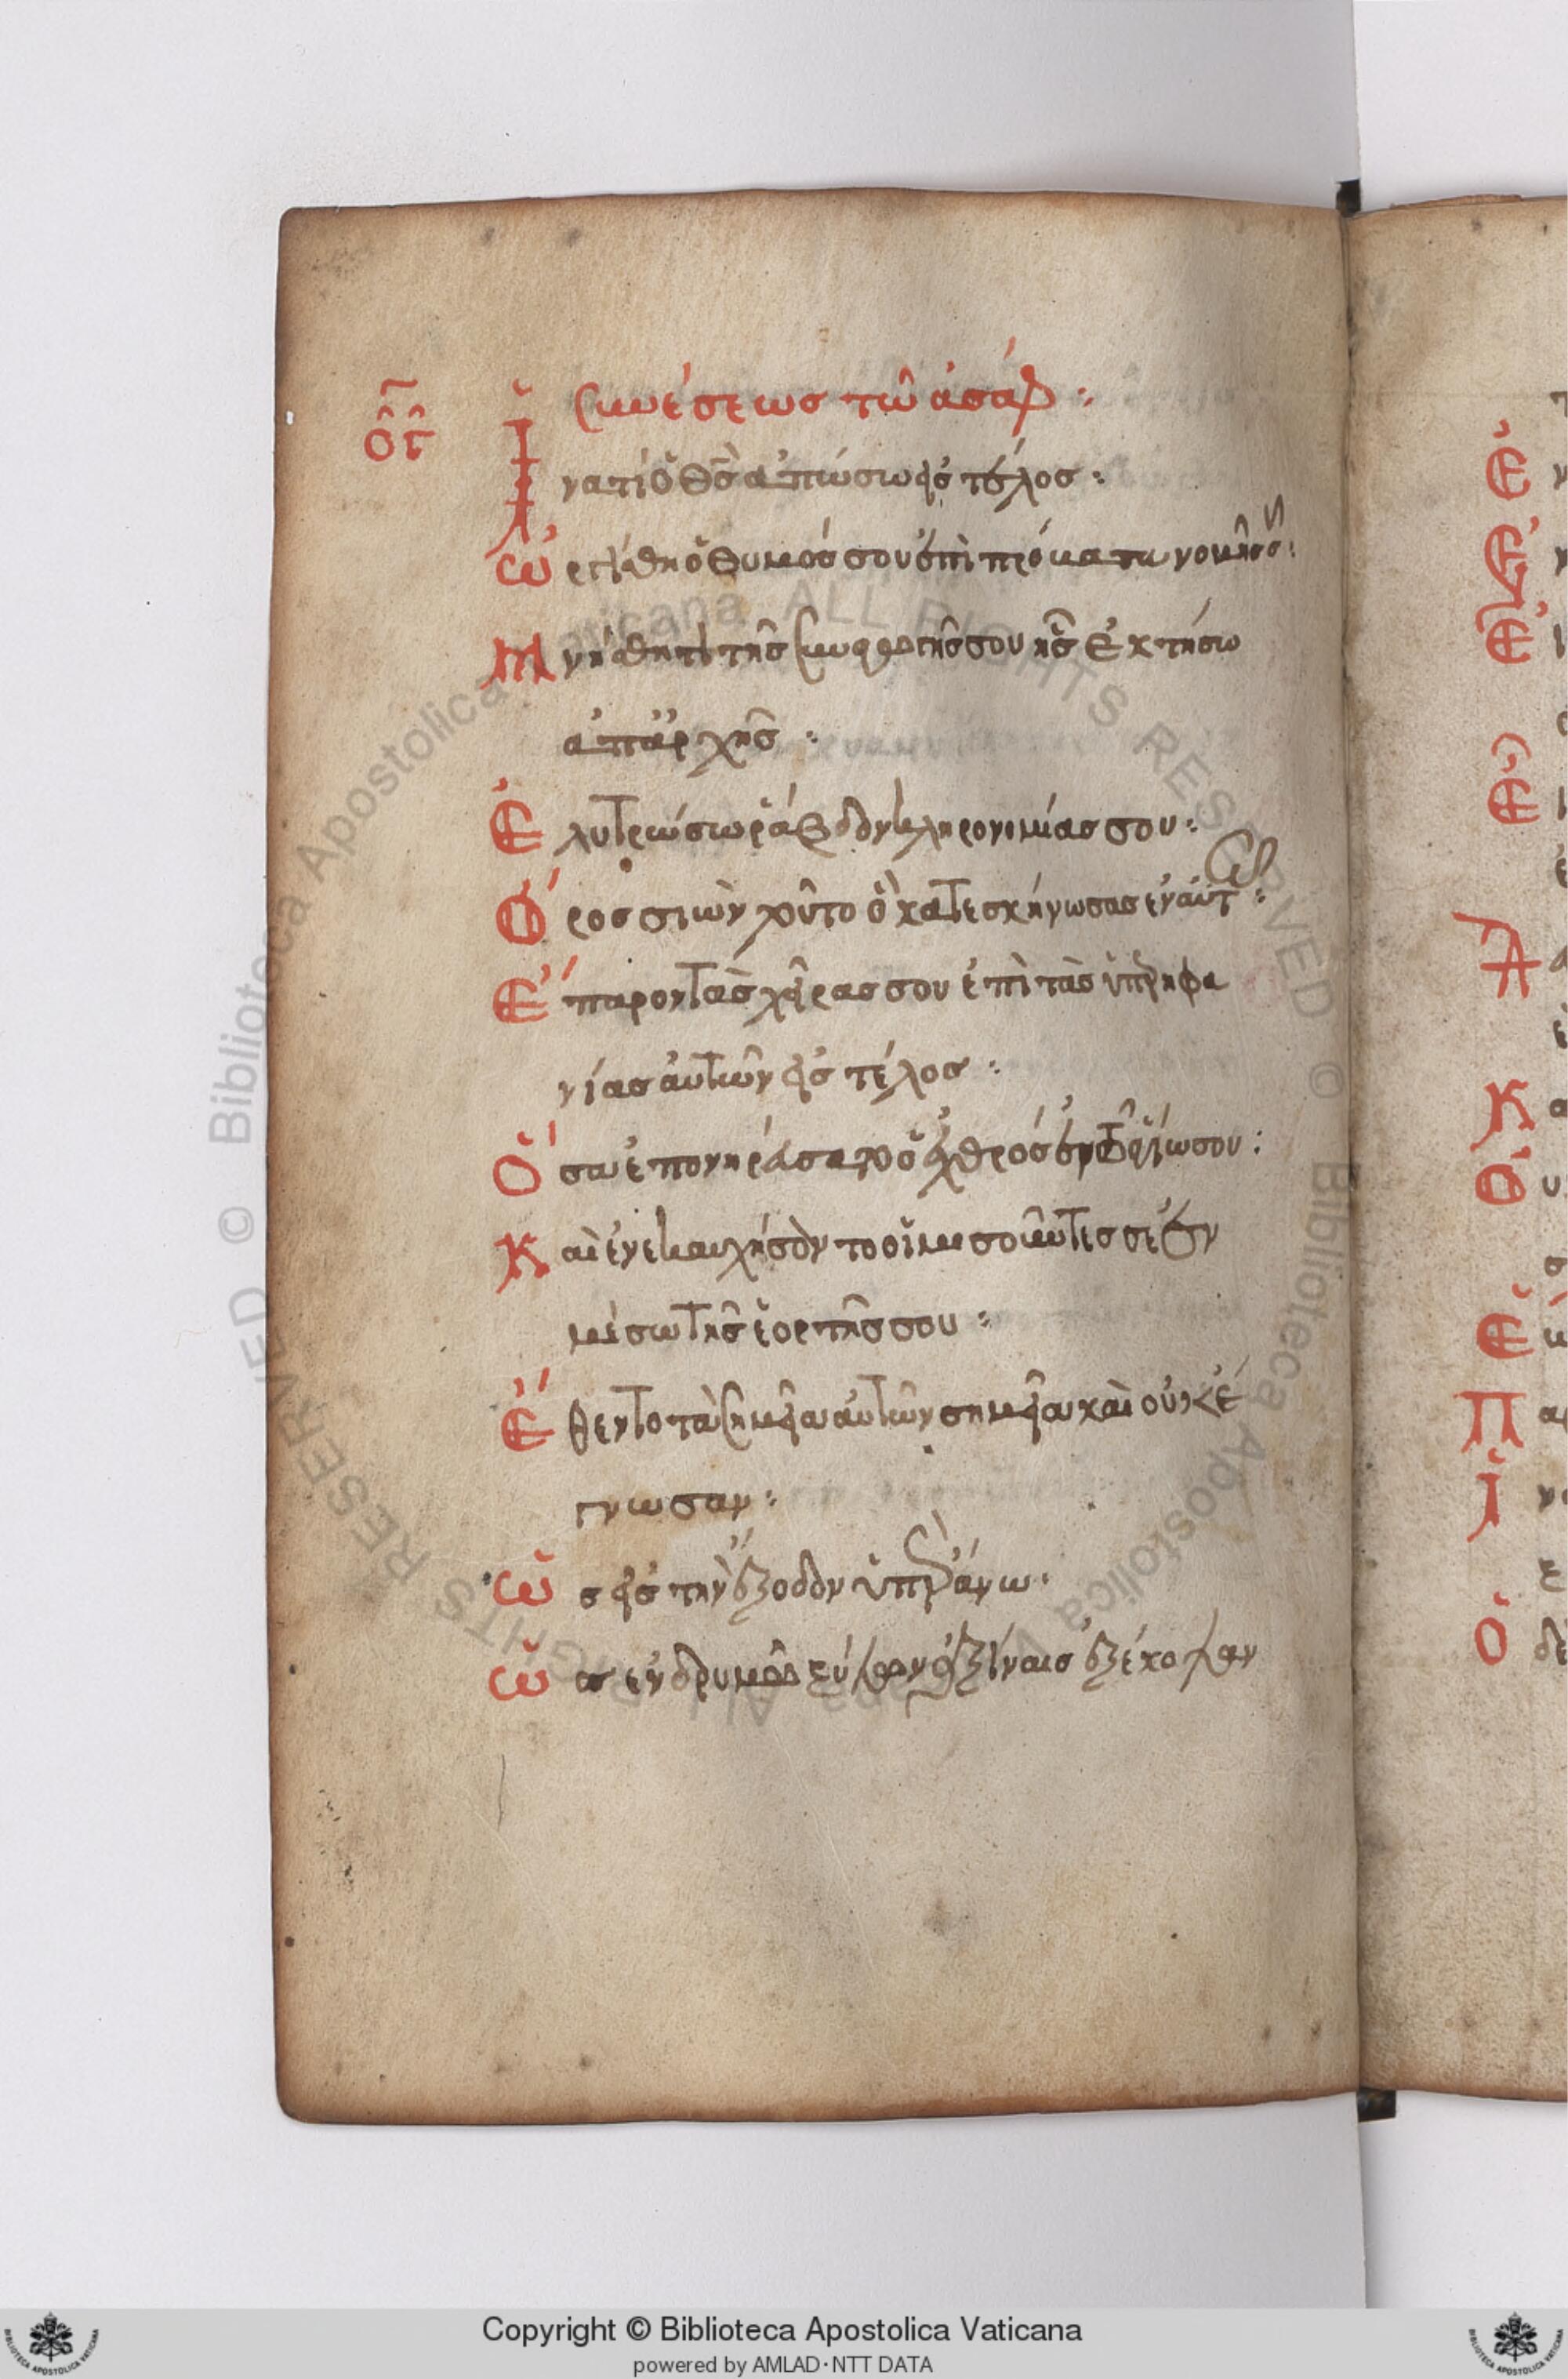 ογ Συνέσεως τῶ ἀσάφ :
Ἱνατί ὁ θς ἀπώσω εἰς τέλος :
Ὠργίσθη ὁ θυμός σου ἐπὶ πρόβατα νομῆς σ :
Μνήσθητι τῆς συναγωγῆς σου ἧς ἐκτήσω
ἀπαρχῆς :
Ἐλυτρώσω ῥάβδον κληρονομίας σου :
Ὄρος σιὼν τοῦτο ὃ κατεσκήνωσας ἐν αὐτῶ :
Ἔπαρον τὰς χεῖρας σου ἐπὶ τὰς ὑπερηφα
νίας αὐτῶν εἰς τέλος :
Ὅσα ἐπονηρεύσατο ὁ ἐχθρὸς ἐν τῶ ἁγίω σου :
Καὶ ἐνεκαυχήσαντο οἱ μισοῦντες σε ἐν
μέσω τῆς ἑορτῆς σου :
Ἔθεντο τὰ σημεῖα αὐτῶν σημεῖα καὶ οὐκ ἔ
γνωσαν :
Ὡς εἰς τὴν ἔξοδον ὑπεράνω ·
Ὡς ἐν δρυμῶ ξύλων ἀξίναις ἐξέκοψαν
Copyright © Biblioteca Apostolica Vaticana
powered by AMLAD·NTT DATA